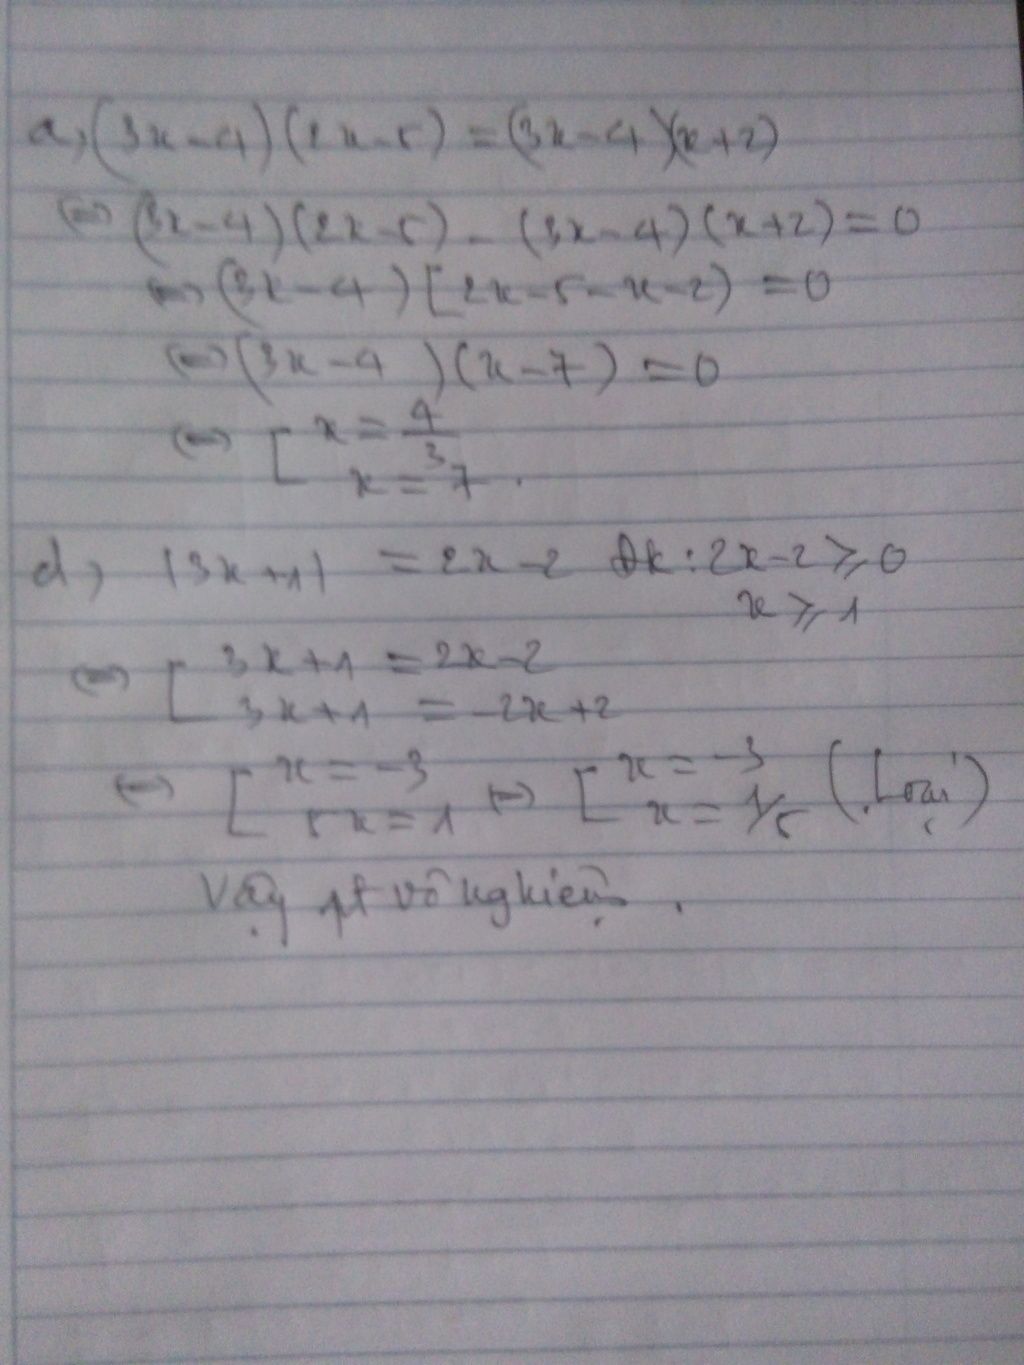 a, (3x-4)(2x-5) = (3x-4)(x+2)
⇔ (3x-4)(2x-5) - (3x-4)(x+2) = 0
⇔ (3x-4) [2x-5-x-2) = 0
⇔ (3x-4)(x-7) = 0
⇔ [ x = 4/3
x = 7.
d, |3x+1| = 2x-2 Đk: 2x-2 ⩾ 0
x ⩾ 1
⇔ [ 3x+1 = 2x-2
3x+1 = -2x+2
⇔ [ x = -3 ⇔ [ x = -3 (Loại)
5x = 1 x = 1/5
Vậy pt vô nghiệm.